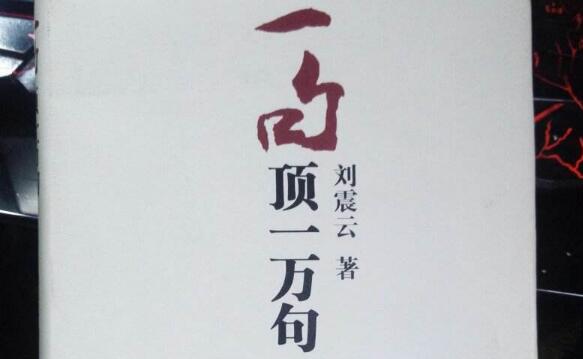 一句
顶一万句
刘震云 著